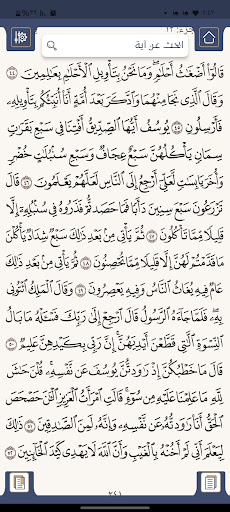 جزء: ١٢
ابحث عن آية
قَالُوٓا۟ أَضْغَٰثُ أَحْلَٰمٍ وَمَا نَحْنُ بِتَأْوِيلِ ٱلْأَحْلَٰمِ بِعَٰلِمِينَ ٤٤
وَقَالَ ٱلَّذِى نَجَا مِنْهُمَا وَٱدَّكَرَ بَعْدَ أُمَّةٍ أَنَا۠ أُنَبِّئُكُم بِتَأْوِيلِهِۦ
فَأَرْسِلُونِ ٤٥ يُوسُفُ أَيُّهَا ٱلصِّدِّيقُ أَفْتِنَا فِى سَبْعِ بَقَرَٰتٍ
سِمَانٍ يَأْكُلُهُنَّ سَبْعٌ عِجَافٌ وَسَبْعِ سُنۢبُلَٰتٍ خُضْرٍ
وَأُخَرَ يَابِسَٰتٍ لَّعَلِّىٓ أَرْجِعُ إِلَى ٱلنَّاسِ لَعَلَّهُمْ يَعْلَمُونَ ٤٦ قَالَ
تَزْرَعُونَ سَبْعَ سِنِينَ دَأَبًا فَمَا حَصَدتُّمْ فَذَرُوهُ فِى سُنۢبُلِهِۦٓ إِلَّا
قَلِيلًا مِّمَّا تَأْكُلُونَ ٤٧ ثُمَّ يَأْتِى مِنۢ بَعْدِ ذَٰلِكَ سَبْعٌ شِدَادٌ يَأْكُلْنَ
مَا قَدَّمْتُمْ لَهُنَّ إِلَّا قَلِيلًا مِّمَّا تُحْصِنُونَ ٤٨ ثُمَّ يَأْتِى مِنۢ بَعْدِ ذَٰلِكَ
عَامٌ فِيهِ يُغَاثُ ٱلنَّاسُ وَفِيهِ يَعْصِرُونَ ٤٩ وَقَالَ ٱلْمَلِكُ ٱئْتُونِى
بِهِۦ فَلَمَّا جَآءَهُ ٱلرَّسُولُ قَالَ ٱرْجِعْ إِلَىٰ رَبِّكَ فَسْـَٔلْهُ مَا بَالُ
ٱلنِّسْوَةِ ٱلَّٰتِى قَطَّعْنَ أَيْدِيَهُنَّ إِنَّ رَبِّى بِكَيْدِهِنَّ عَلِيمٌ ٥٠
قَالَ مَا خَطْبُكُنَّ إِذْ رَٰوَدتُّنَّ يُوسُفَ عَن نَّفْسِهِۦ قُلْنَ حَٰشَ
لِلَّهِ مَا عَلِمْنَا عَلَيْهِ مِن سُوٓءٍ قَالَتِ ٱمْرَأَتُ ٱلْعَزِيزِ ٱلْـَٰٔنَ حَصْحَصَ
ٱلْحَقُّ أَنَا۠ رَٰوَدتُّهُۥ عَن نَّفْسِهِۦ وَإِنَّهُۥ لَمِنَ ٱلصَّٰدِقِينَ ٥١ ذَٰلِكَ
لِيَعْلَمَ أَنِّى لَمْ أَخُنْهُ بِٱلْغَيْبِ وَأَنَّ ٱللَّهَ لَا يَهْدِى كَيْدَ ٱلْخَآئِنِينَ ٥٢
٢٤١